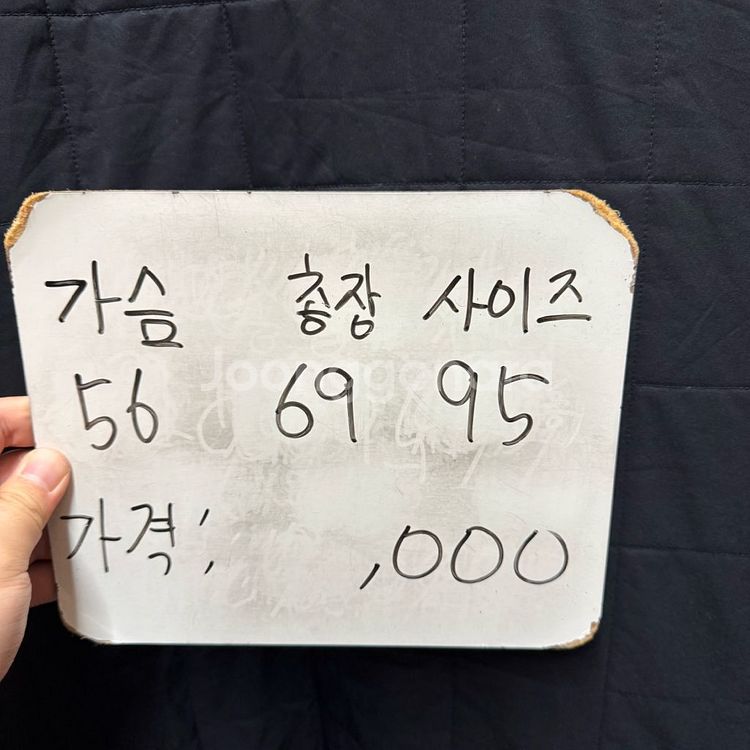 가슴 총장 사이즈
56 69 95
Joonggonara
가격: ,000